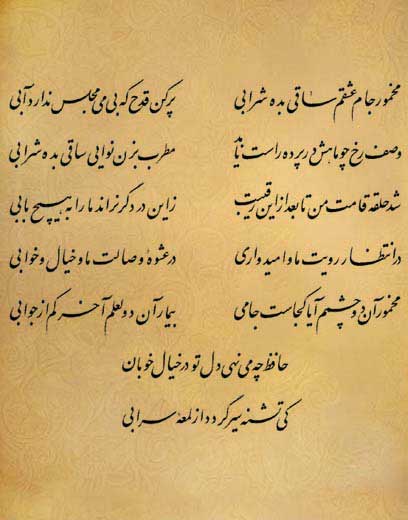 مخمور جام عشقم ساقی بده شرابی پر کن قدح که بی می مجلس ندارد آبی
وصف رخ چو ماهش در پرده راست ناید مطرب بزن نوایی ساقی بده شرابی
شد حلقه قامت من تا بعد از این رقیبت زاین در دگر نراند ما را به هیچ بابی
در انتظار رویت ما و امیدواری در عشوهٔ وصالت ما و خیال و خوابی
مخمور آن دو چشم آیا کجاست جامی بیمار آن دو لعلم آخر کم از جوابی
حافظ چه می نهی دل تو در خیال خوبان
کی تشنه سیر گردد از لمعهٔ سرابی